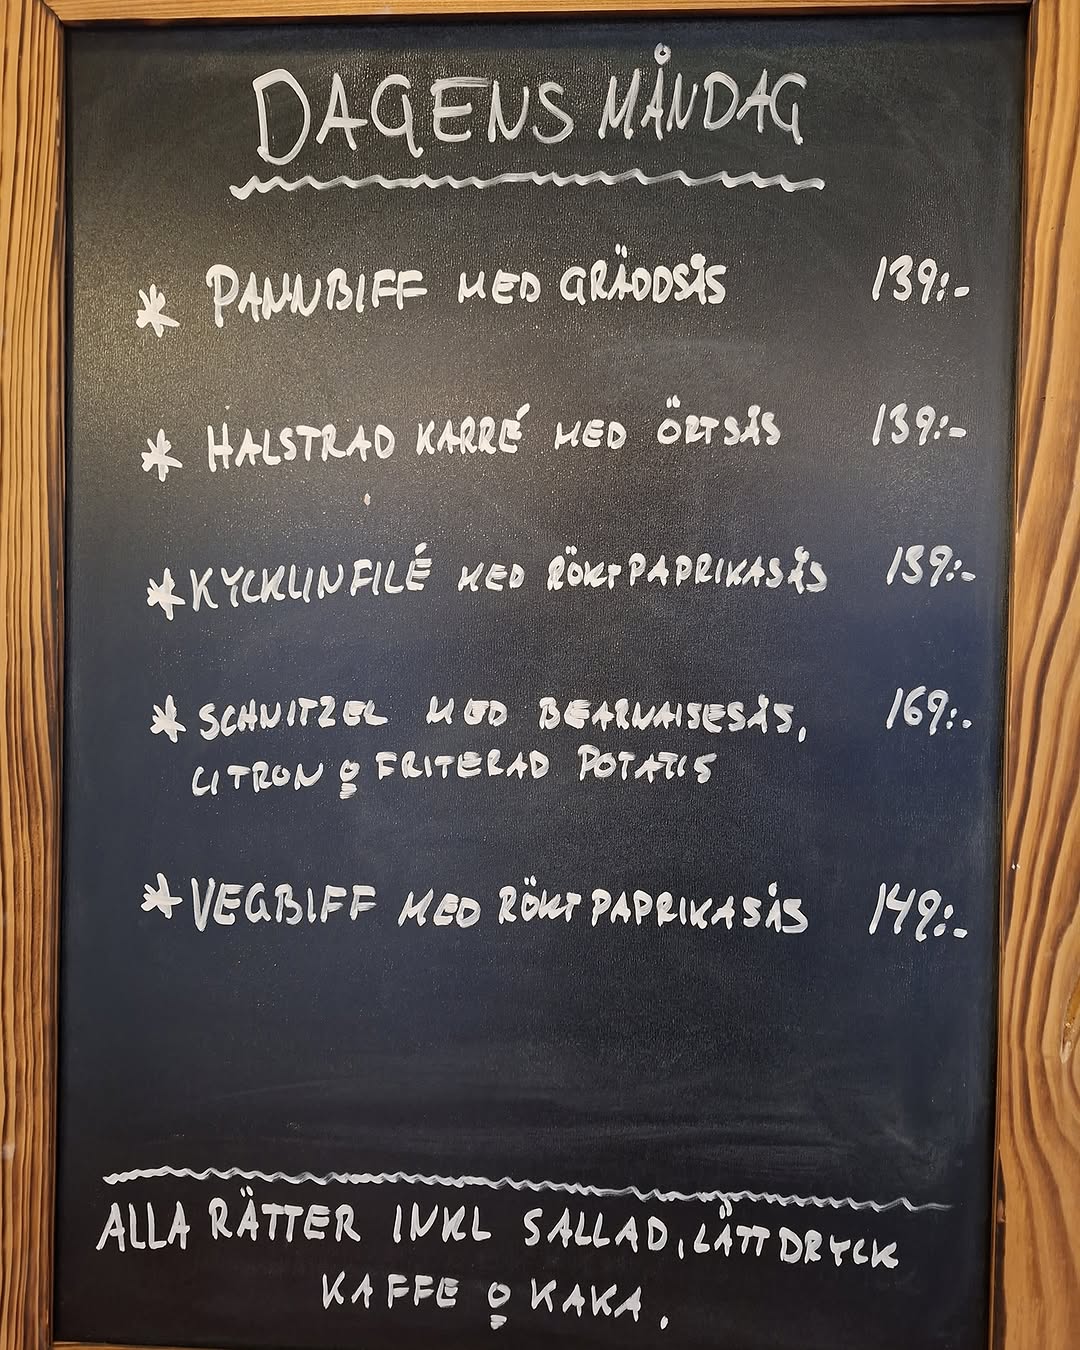 DAGENS MÅNDAG
* PANNBIFF MED GRÄDDSÅS 139:-
* HALSTRAD KARRÉ MED ÖRTSÅS 139:-
* KYCKLINFILÉ MED RÖKT PAPRIKASÅS 139:-
* SCHNITZEL MED BEARNAISESÅS, 169:-
CITRON o FRITERAD POTATIS
* VEGBIFF MED RÖKT PAPRIKASÅS 149:-
ALLA RÄTTER INKL SALLAD, LÄTTDRYCK
KAFFE o KAKA.